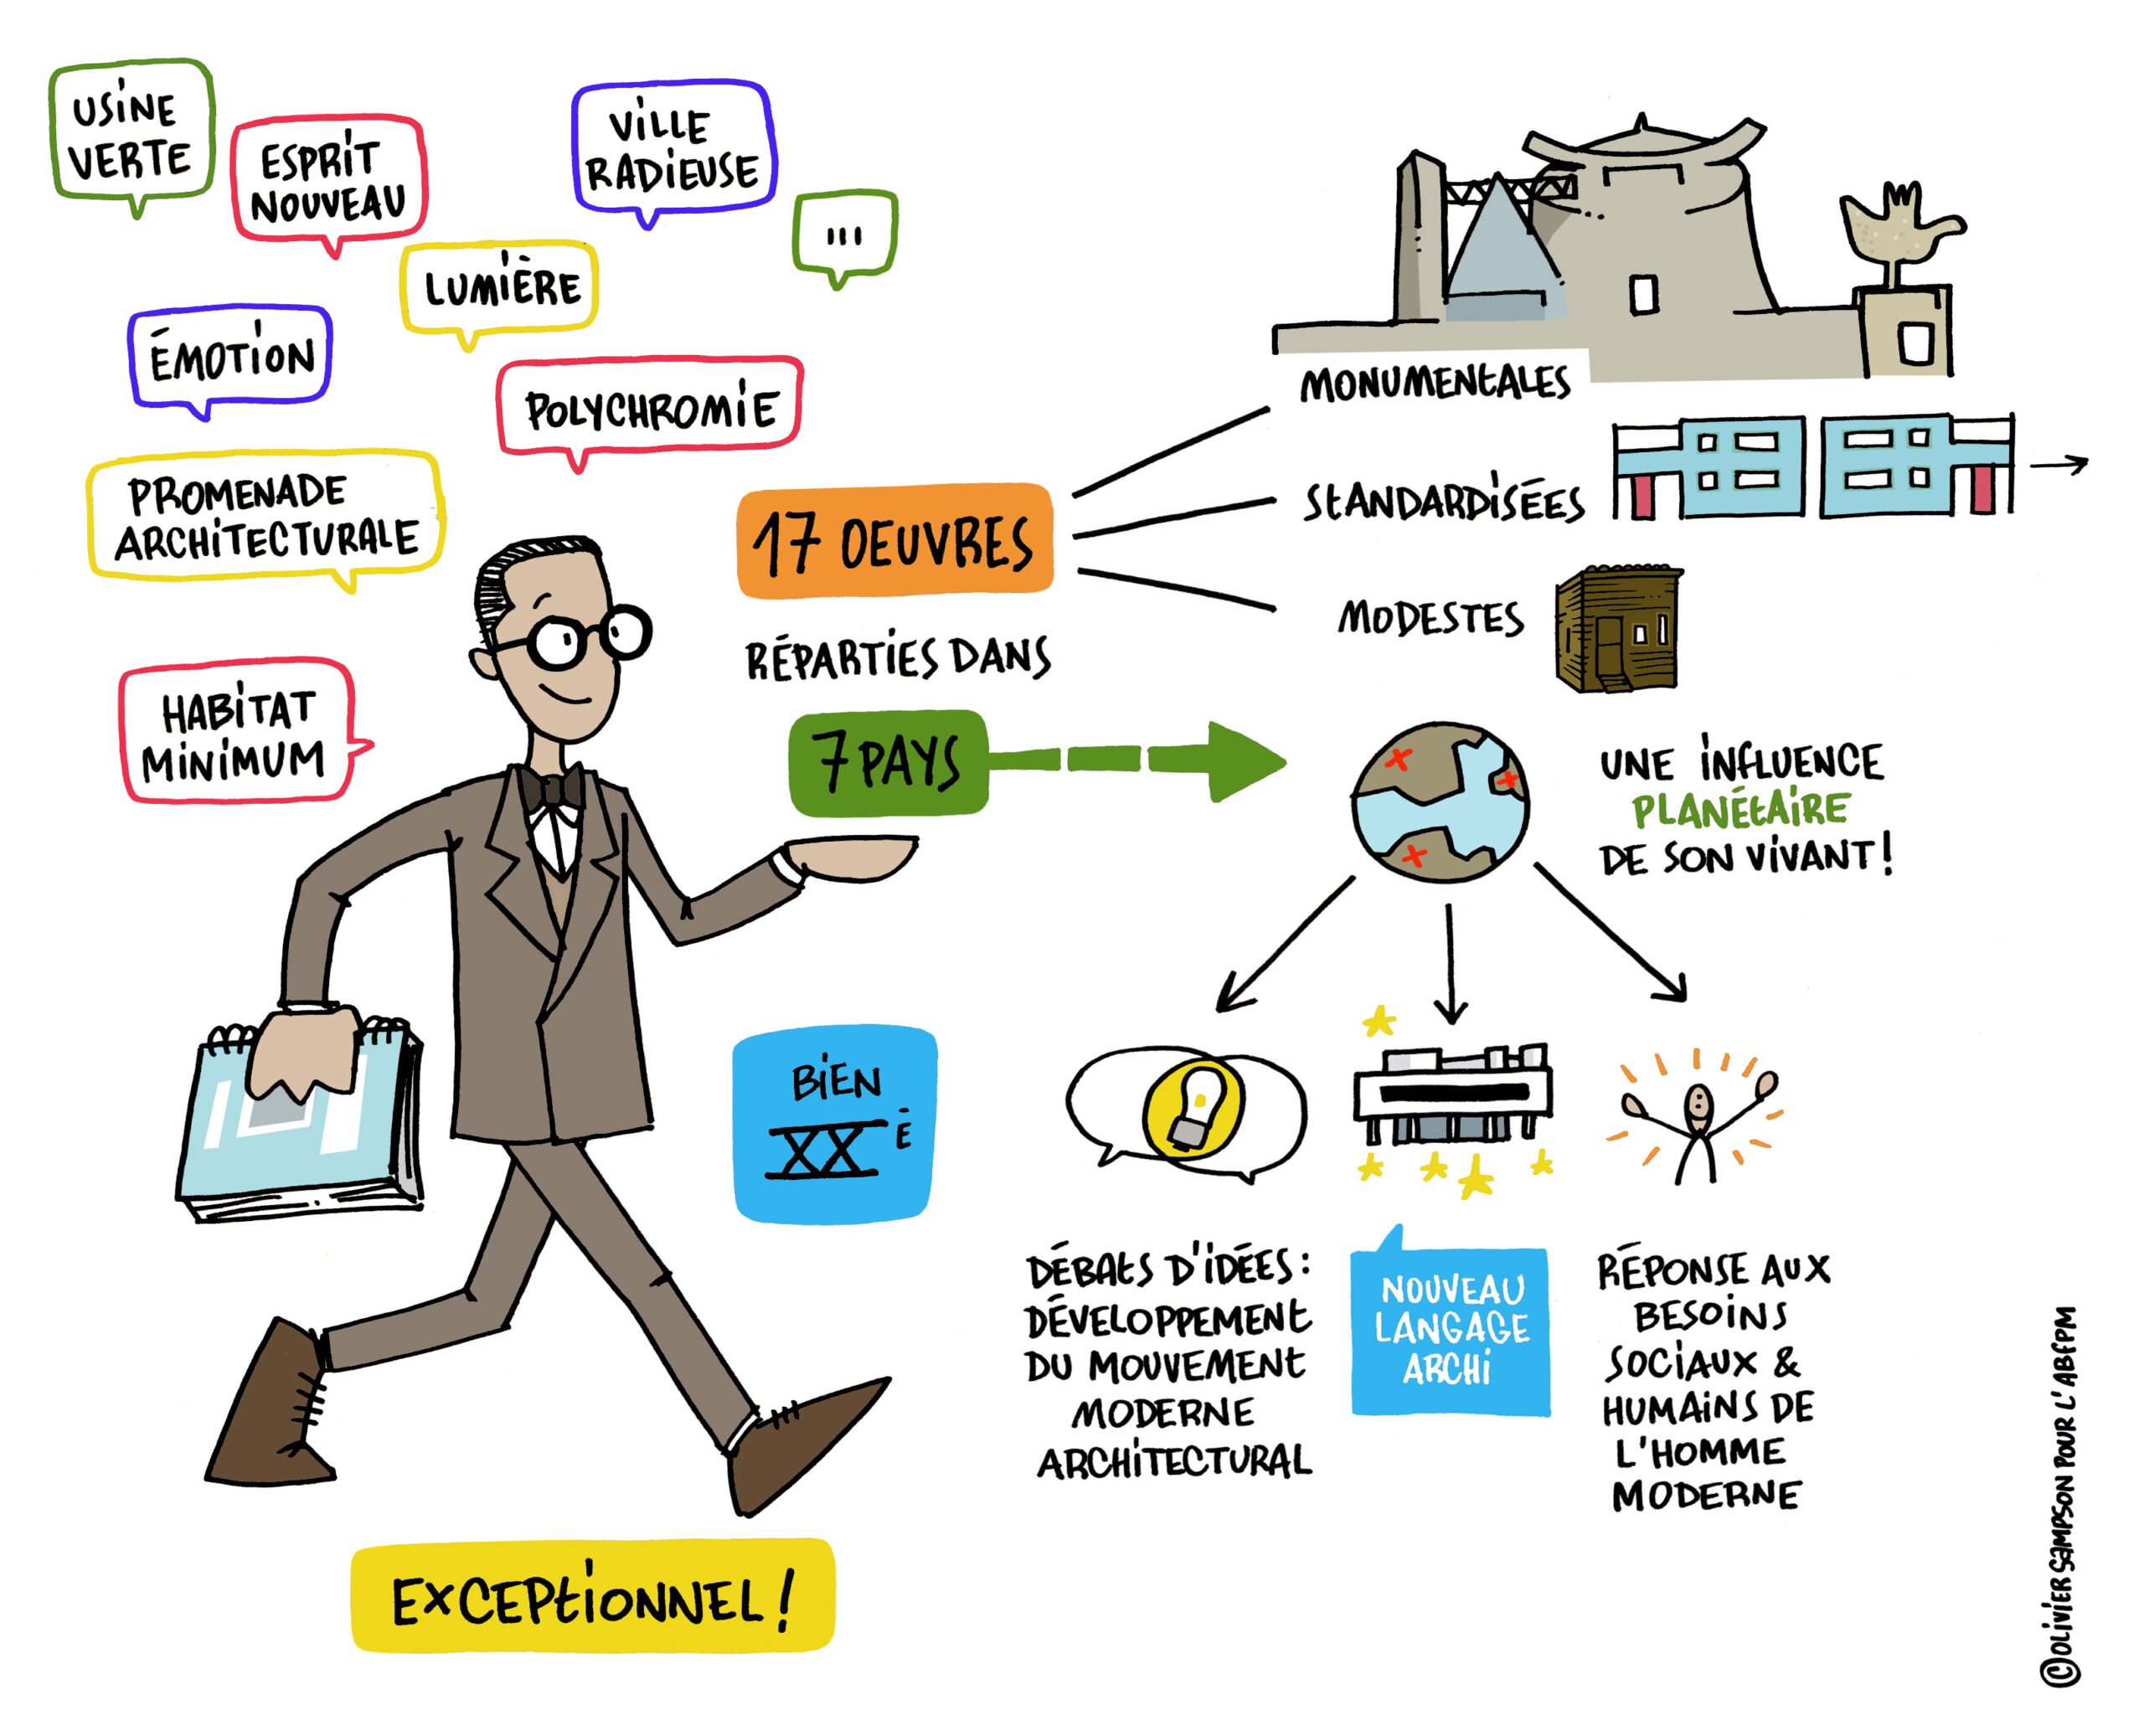 USINE
VERTE
ESPRIT
NOUVEAU
VILLE
RADIEUSE
...
LUMIÈRE
ÉMOTION
POLYCHROMIE
PROMENADE
ARCHITECTURALE
HABITAT
MINIMUM
17 OEUVRES
RÉPARTIES DANS
7 PAYS
MONUMENTALES
STANDARDISÉES
MODESTES
UNE INFLUENCE
PLANÉTAIRE
DE SON VIVANT!
BIEN
XX È
DÉBATS D'IDÉES:
DÉVELOPPEMENT
DU MOUVEMENT
MODERNE
ARCHITECTURAL
NOUVEAU
LANGAGE
ARCHI
RÉPONSE AUX
BESOINS
SOCIAUX &
HUMAINS DE
L'HOMME
MODERNE
EXCEPTIONNEL!
©OLIVIER SAMPSON POUR L'ABFPM